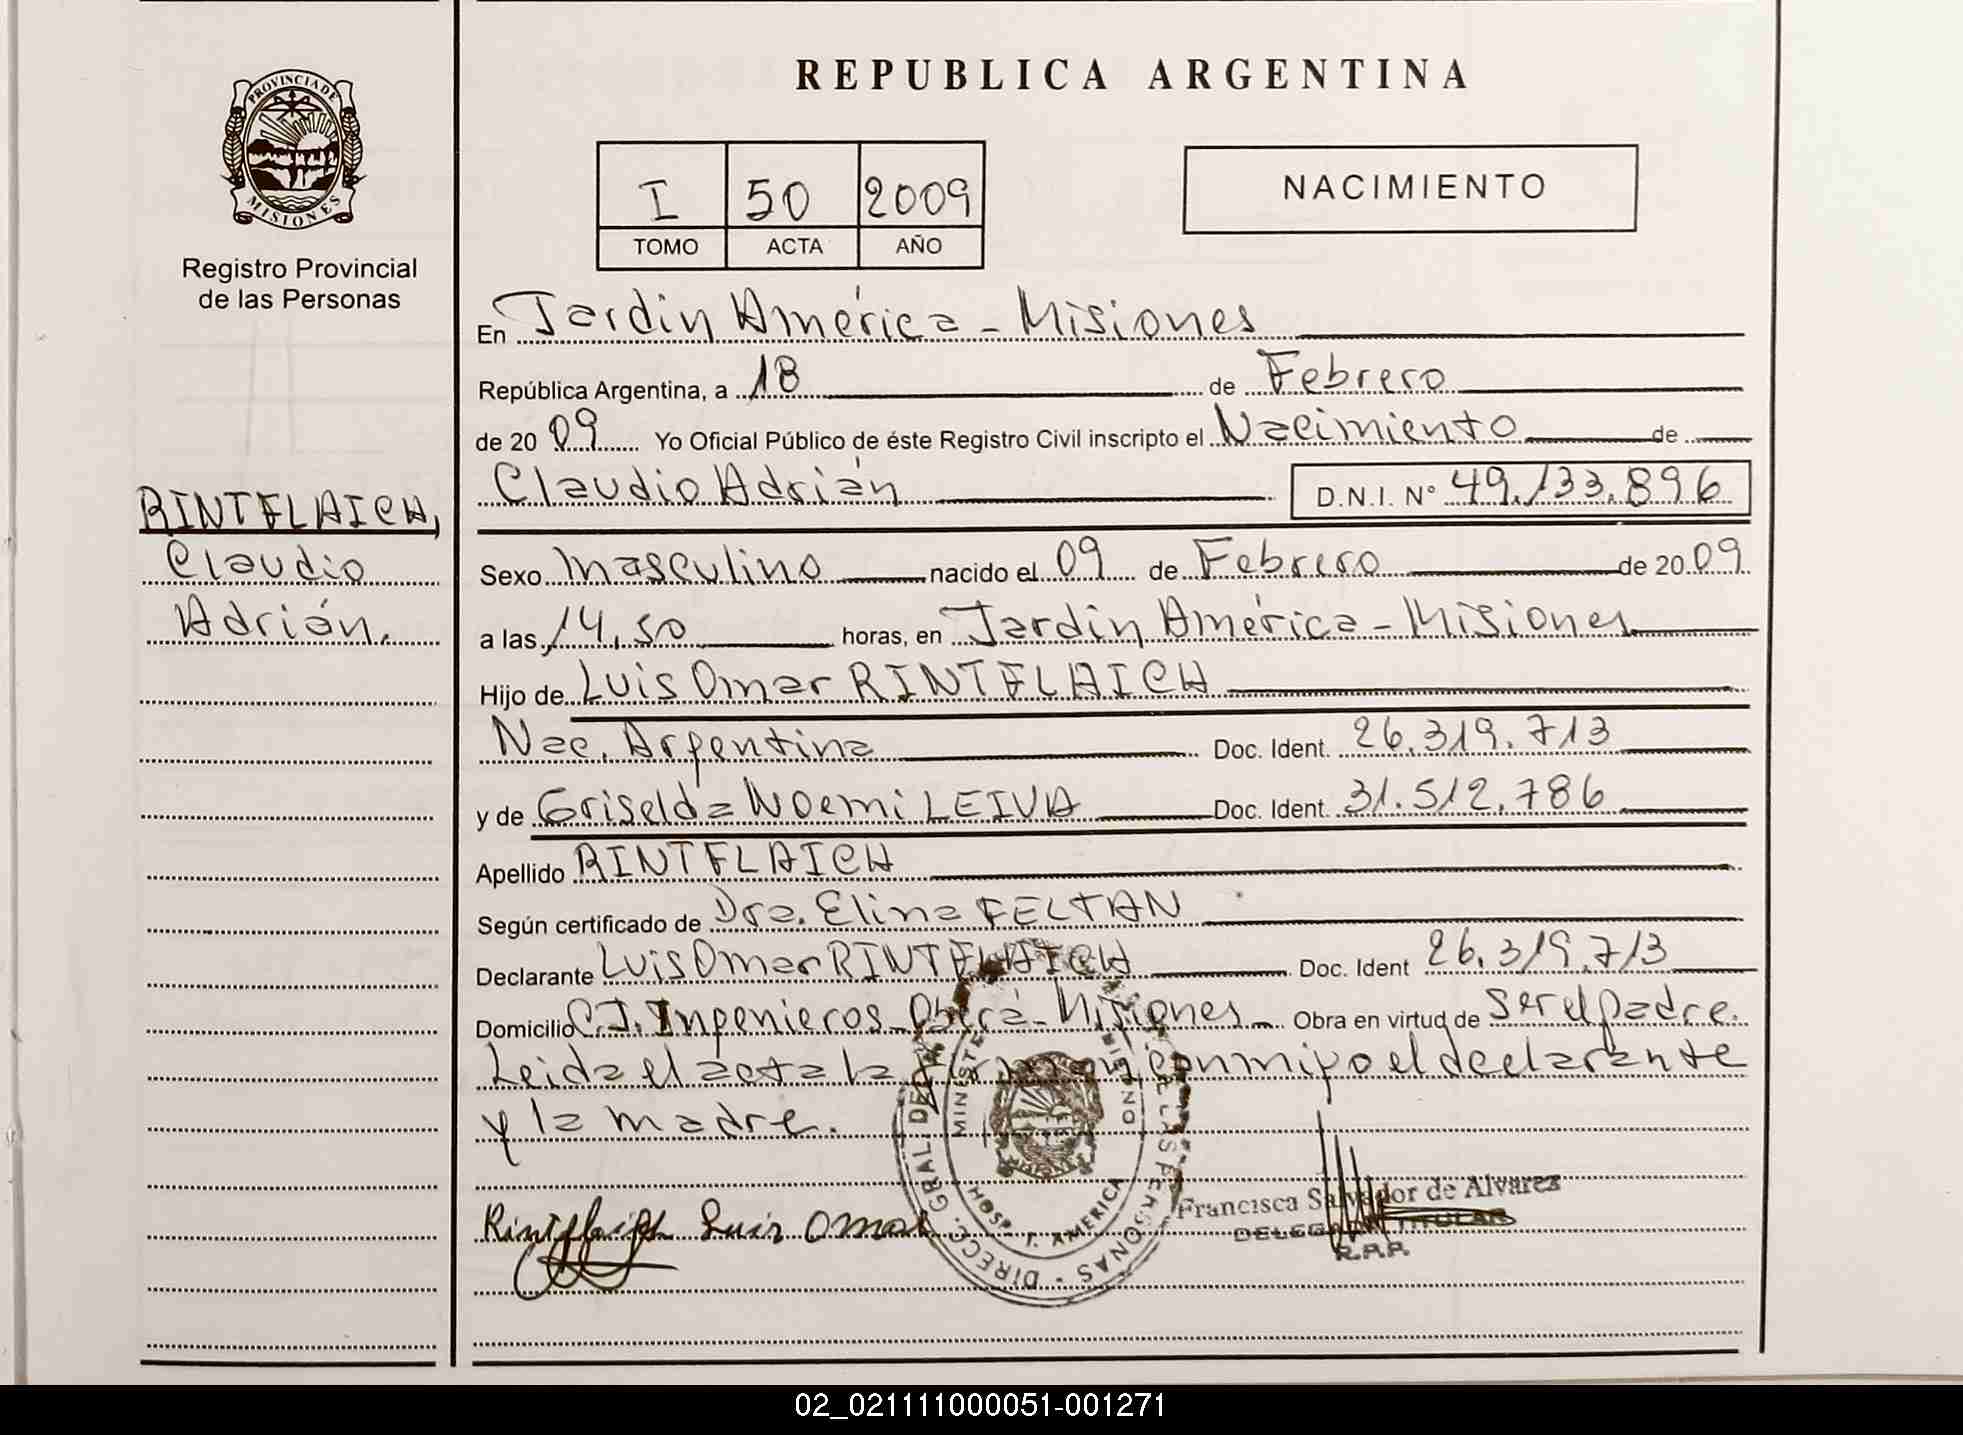 REPUBLICA ARGENTINA
PROVINCIA DE
MISIONES
Registro Provincial
de las Personas
I 50 2009
TOMO ACTA AÑO
NACIMIENTO
RINTFLAICH,
Claudio
Adrián.
En Jardín América - Misiones
República Argentina, a 18 de Febrero
de 2009 Yo Oficial Público de éste Registro Civil inscripto el Nacimiento de
Claudio Adrián D.N.I. N° 49.133.896
Sexo Masculino nacido el 09 de Febrero de 2009
a las 14,50 horas, en Jardín América - Misiones
Hijo de Luis Omar RINTFLAICH
Nac. Argentina Doc. Ident. 26.319.713
y de Griselda Noemi LEIVA Doc. Ident. 31.512.786
Apellido RINTFLAICH
Según certificado de Dra. Elina FELTAN
Declarante Luis Omar RINTFLAICH Doc. Ident 26.319.713
Domicilio C.J. Ingenieros Oberá - Misiones Obra en virtud de Ser el padre.
Leida el acta la conmigo el declarante
y la madre.
DIRECC. GRAL DE LAS PERSONAS
HOSP. J. AMERICA
Rintflaich Luis Omar
Francisca Salvador de Alvarez
DELEGADA TITULAR
R.P.P.
02_021111000051-001271